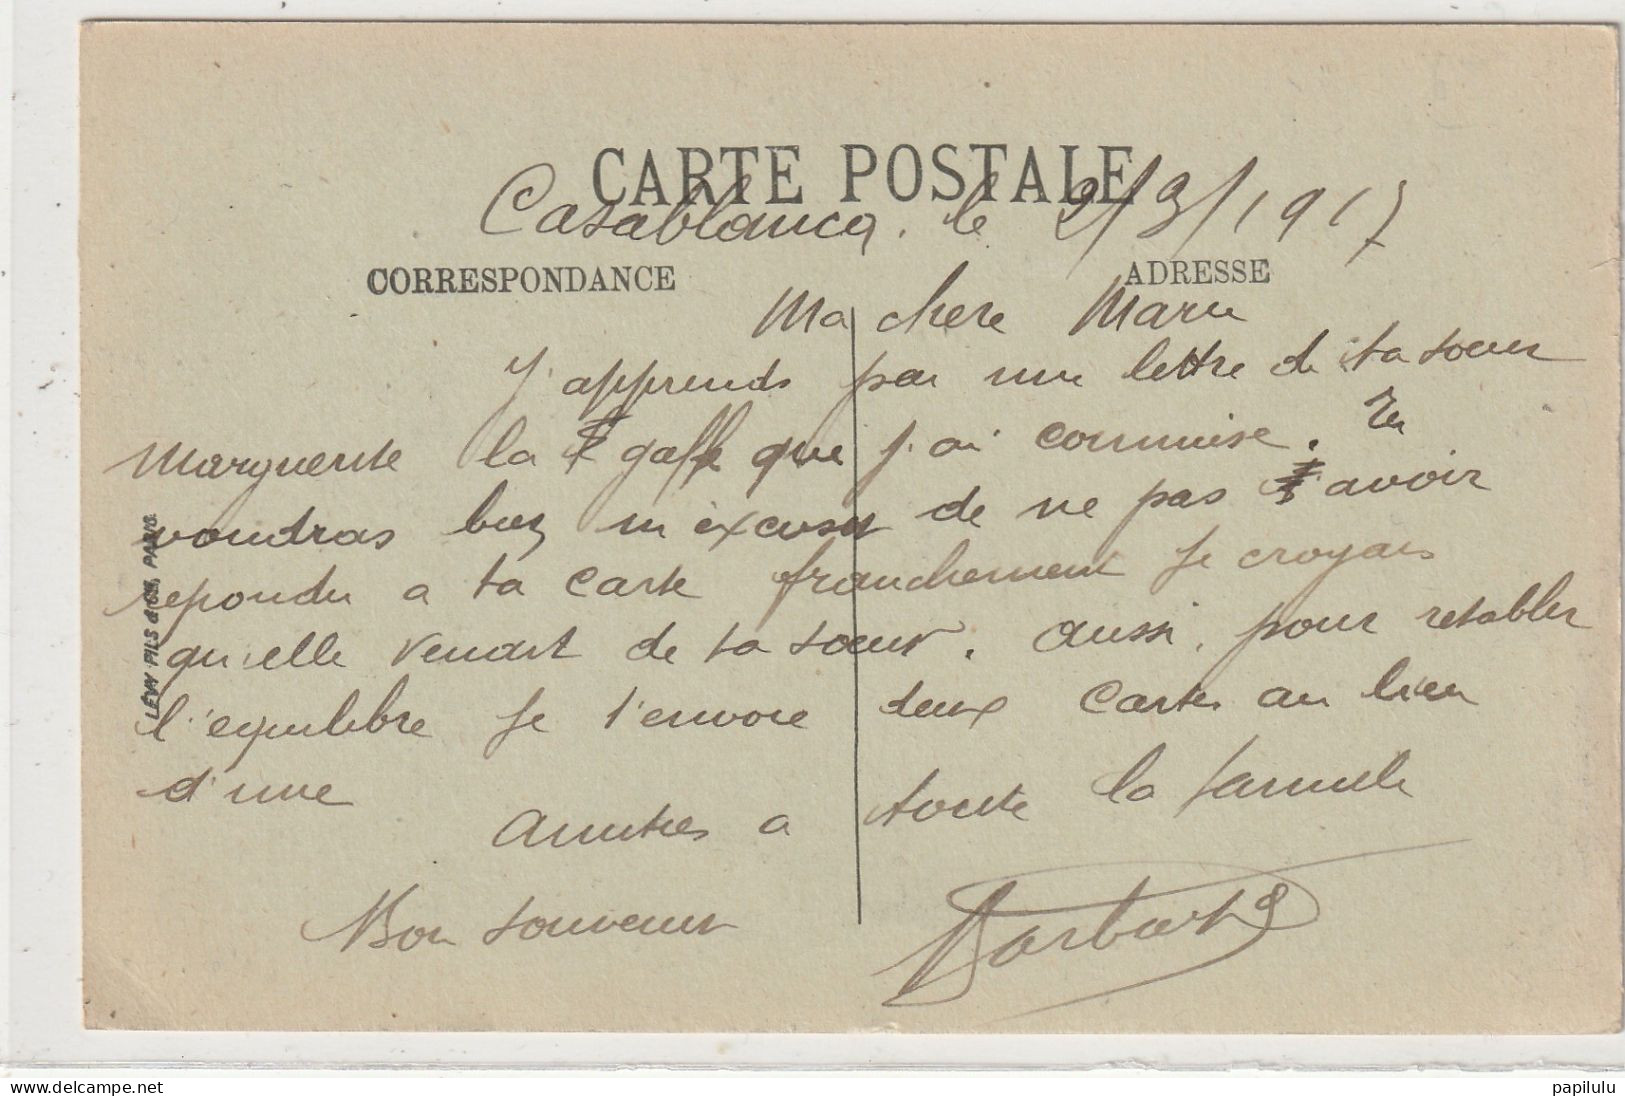 CARTE POSTALE
Casablanca, le 2/3/1917
CORRESPONDANCE
ADRESSE
Ma chere Marie
J'apprends par une lettre de ta soeur
Marguerite la gaffe que j'ai commise. Tu
voudras bien m'excuser de ne pas avoir
repondu a ta carte franchement je croyais
qu'elle venait de ta soeur. aussi, pour retablir
l'equilibre je t'envoie deux cartes au lieu
d'une
Amities a toute la famille
Bon souvenir
LÉVY FILS & Cie, PARIS.
www.delcampe.net
papilulu